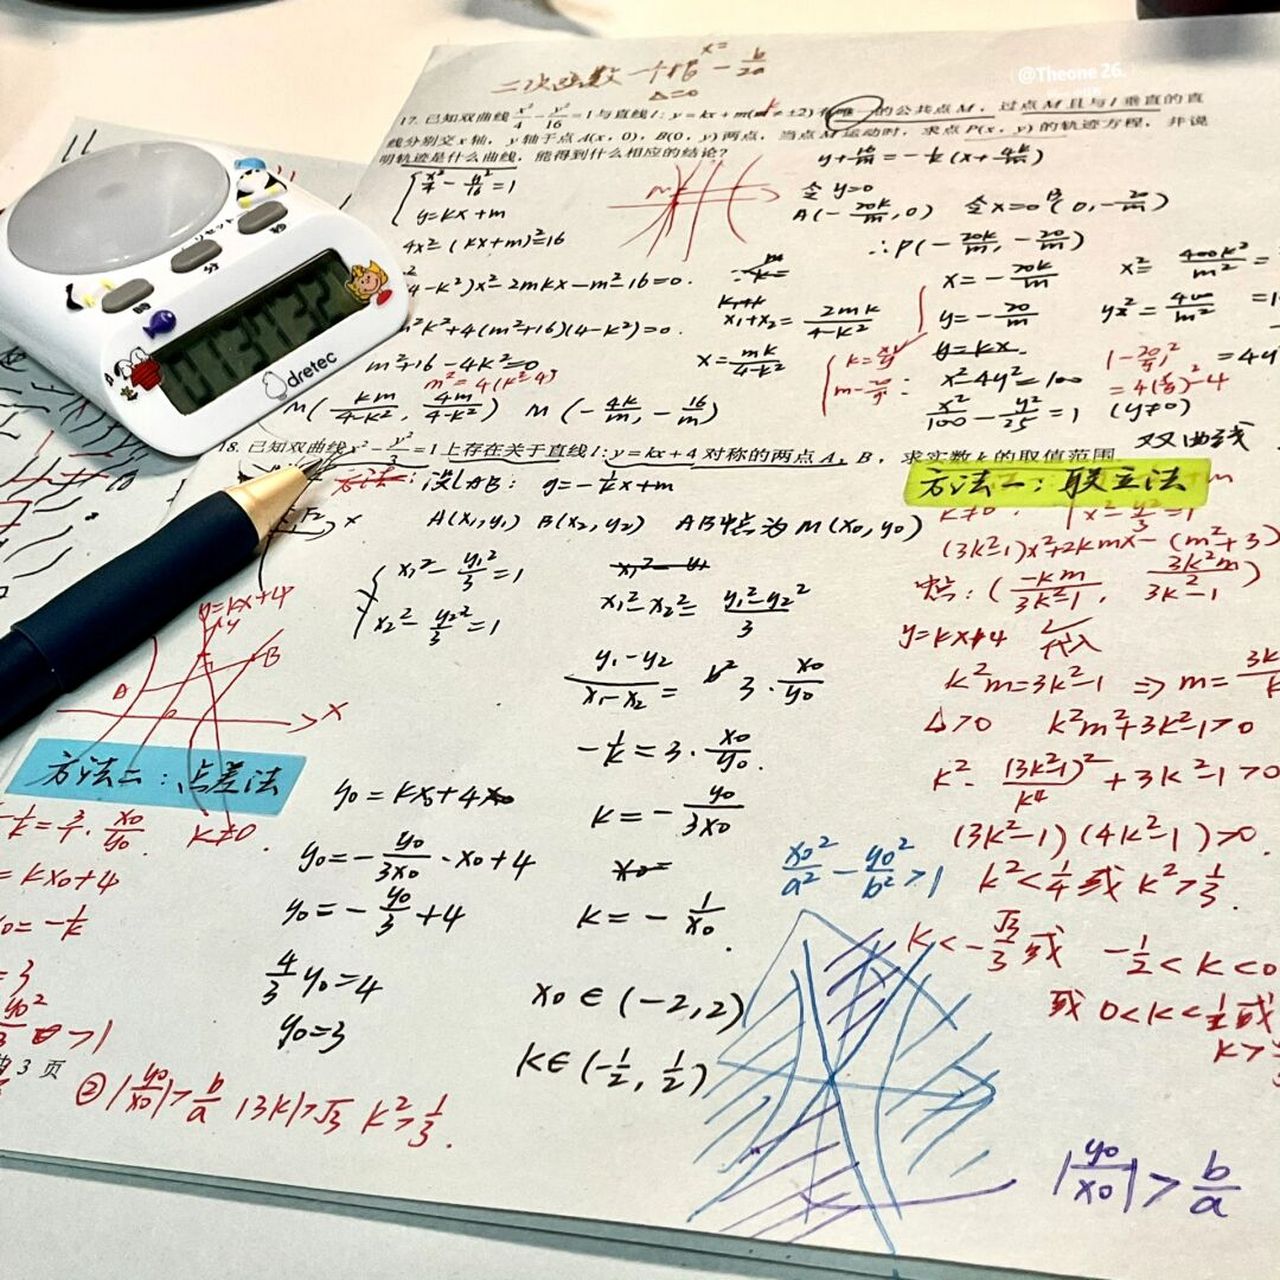 @Theone 26.
二次函数
x=-\frac{b}{2a}
△=0
17. 已知双曲线\frac{x²}{4}-\frac{y²}{16}=1与直线l:y=kx+m(m≠±2)有唯一的公共点M，过点M且与l垂直的直
线分别交x轴，y轴于点A(x，0)，B(0，y)两点，当点M运动时，求点P(x，y)的轨迹方程，并说
明轨迹是什么曲线，能得到什么相应的结论?
\frac{x²}{4}-\frac{y²}{16}=1
y=kx+m
4x²-(kx+m)²=16
4-k²)x²-2mkx-m²-16=0.
m²k²+4(m²+16)(4-k²)=0.
m²+16-4k²=0
m²=4(k²-4)
M(\frac{km}{4-k²}, \frac{4m}{4-k²}) M(-\frac{4k}{m}, -\frac{16}{m})
M
x₁+x₂=\frac{2mk}{4-k²}
x=\frac{mk}{4-k²}
y+\frac{16}{m}=-\frac{1}{k}(x+\frac{4k}{m})
令y=0
A(-\frac{20k}{m},0) 令x=0 B(0,-\frac{20}{m})
∴P(-\frac{20k}{m},-\frac{20}{m})
x=-\frac{20k}{m} x²=\frac{400k²}{m²}=
y=-\frac{20}{m} y²=\frac{400}{m²}
y=kx
x²-4y²=100
\frac{x²}{100}-\frac{y²}{25}=1 (y≠0)
双曲线
k=\frac{x}{y}
=4(\frac{x}{y})²-4
18. 已知双曲线x²-\frac{y²}{3}=1上存在关于直线l:y=kx+4对称的两点A，B，求实数k的取值范围
方法一：联立法
方法: 设lAB: y=-\frac{1}{k}x+m
A(x₁,y₁) B(x₂,y₂) AB中点为M(x₀,y₀)
x₁²-\frac{y₁²}{3}=1
x₂²-\frac{y₂²}{3}=1
x₁²-x₂²=\frac{y₁²-y₂²}{3}
\frac{y₁-y₂}{x₁-x₂}=3·\frac{x₀}{y₀}
-\frac{1}{k}=3·\frac{x₀}{y₀}.
k=-\frac{y₀}{3x₀}
k=-\frac{1}{x₀}.
x₀∈(-2,2)
k∈(-\frac{1}{2},\frac{1}{2})
y₀=kx₀+4
y₀=-\frac{y₀}{3x₀}·x₀+4
y₀=-\frac{y₀}{3}+4
\frac{4}{3}y₀=4
y₀=3
k≠0.
x²-\frac{y²}{3}=1
(3k²-1)x²+2kmx-(m²+3)
中点:(\frac{-km}{3k²-1}, \frac{3k²m}{3k²-1})
y=kx+4 代入
k²m=3k²-1 ⇒ m=
△>0 k²m²+3k²-1>0
k²·\frac{(3k²-1)²}{k⁴}+3k²-1>0
(3k²-1)(4k²-1)>0.
k²<\frac{1}{4}或k²>\frac{1}{3}.
k<-\frac{√3}{3}或 -\frac{1}{2}<k<0
或0<k<\frac{1}{2}或
k>
F₂ x
y=kx+4
y
A
B
x
方法二：点差法
-\frac{1}{k}=\frac{3}{1}·\frac{x₀}{y₀}. k≠0.
=kx₀+4
x₀=-\frac{1}{k}
=3
>1
3 页
② |\frac{y₀}{x₀}|>\frac{b}{a} |3k|>√3 k²>\frac{1}{3}.
\frac{x₀²}{a²}-\frac{y₀²}{b²}>1
|\frac{y₀}{x₀}|>\frac{b}{a}
dretec